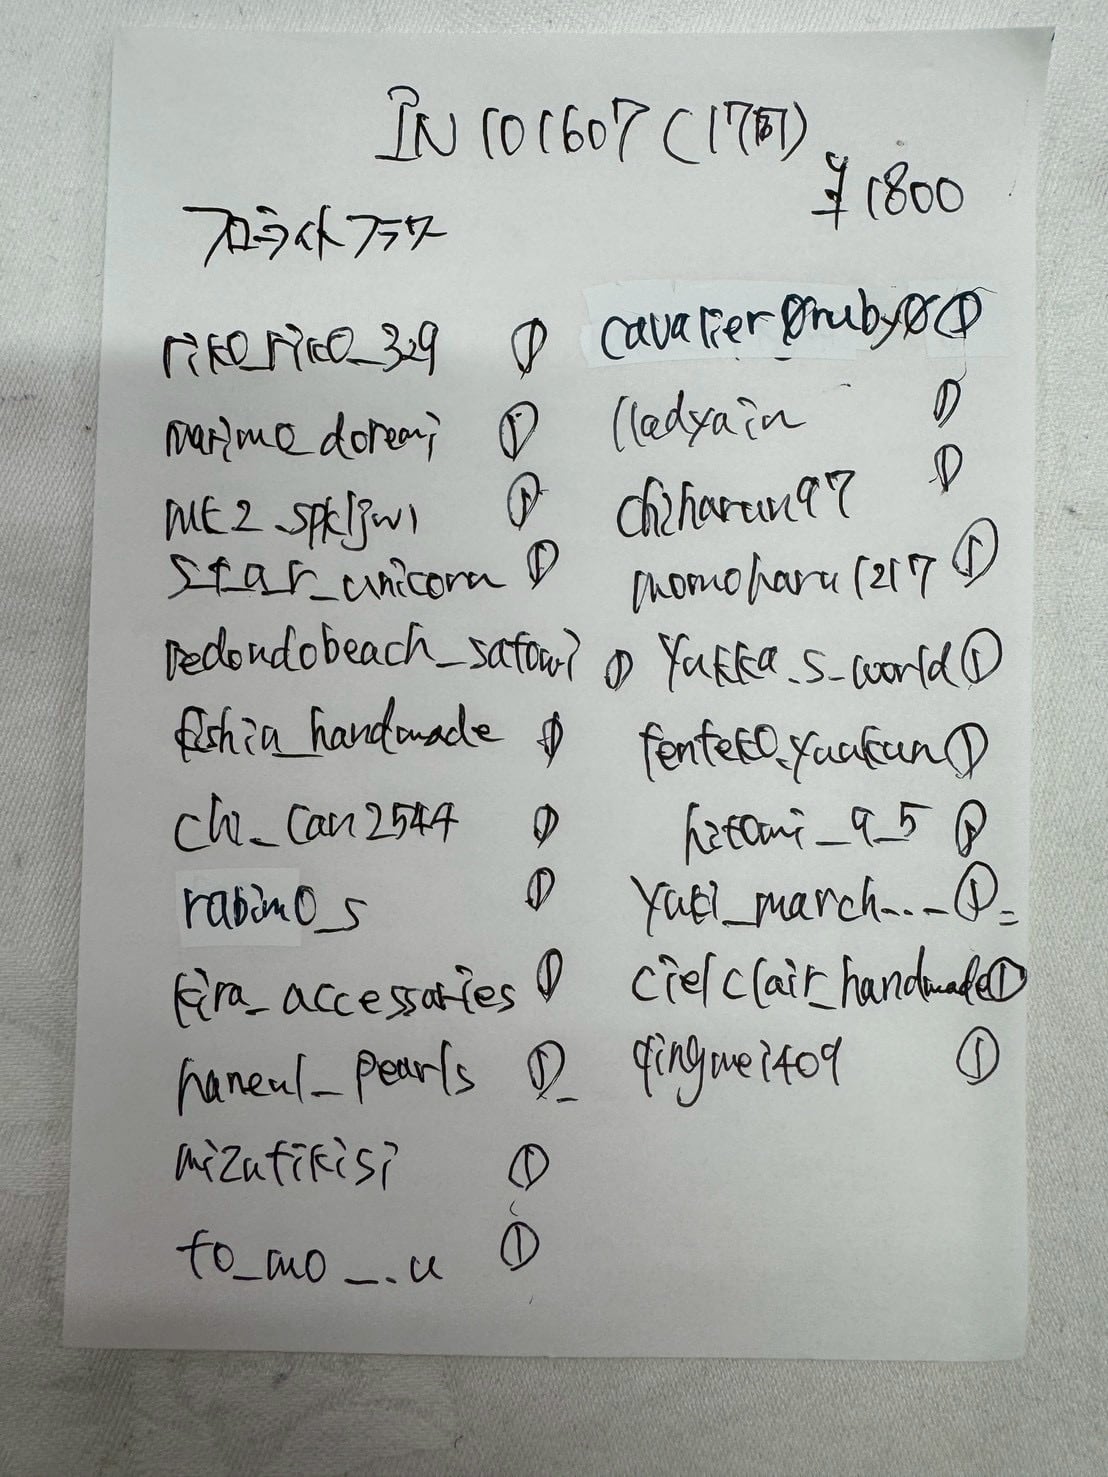 IN 101607 (17時)
¥1800
フローライトフラワー
riko_riko_329 ①
marimo_doremi ①
star_unicorn ①
redondobeach_satomi ①
①
chi_can2544 ①
rabimo_s ①
kira_accessaries ①
haneul_pearls ①
mizutikisi ①
to_mo__.u ①
cavalier0ruby0 ①
lladyain ①
chiharun97 ①
momoharu1217 ①
yukka.s_world ①
tenteko.yuukun ①
hitomi_9_5 ①
yuki_march... ①
cielclair_handmade ①
qingmei409 ①